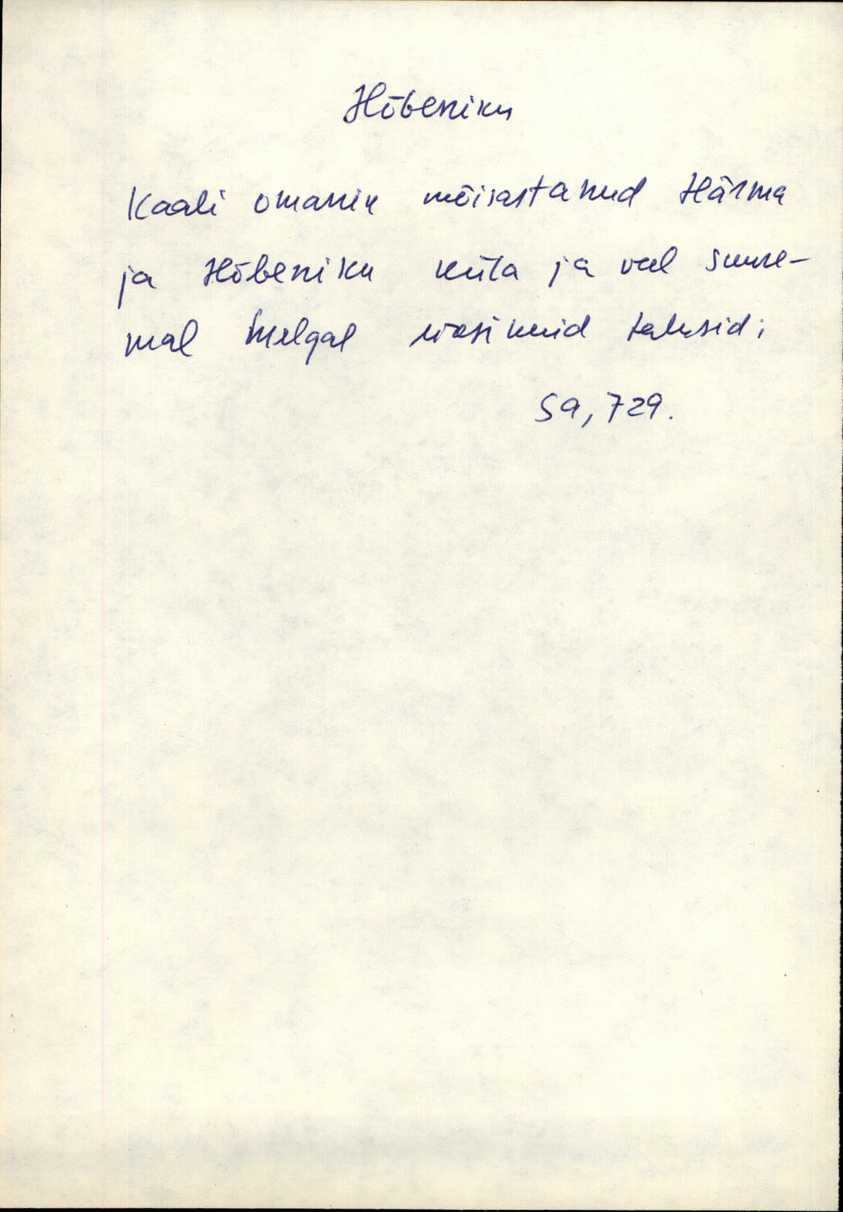 Hõbeniku
Kaali omanik mõisastanud Härma
ja Hõbeniku küla ja veel suure-
mal hulgal üksikuid talusid;
Sa, 729.